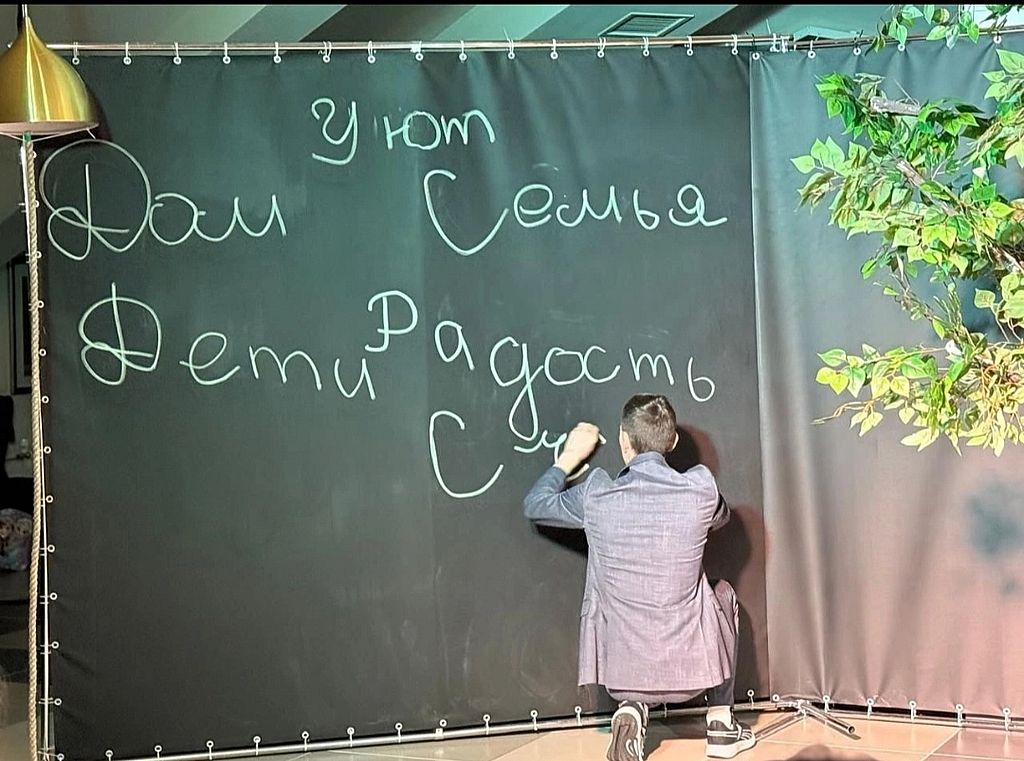 Уют
Дом Семья
Дети Радость